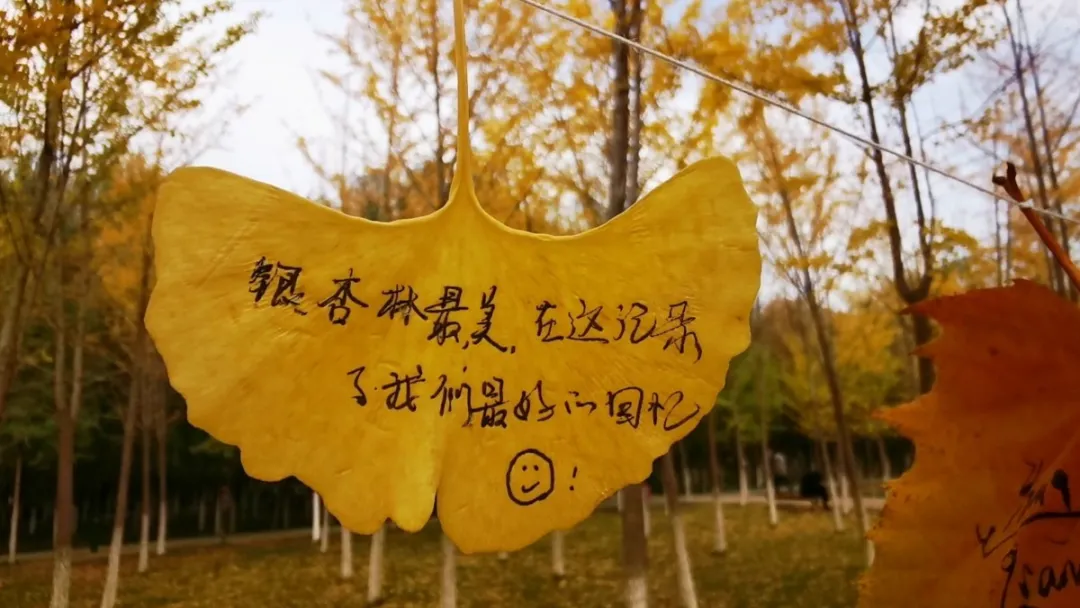 银杏林最美,在这记录
了我们最好的回忆
!